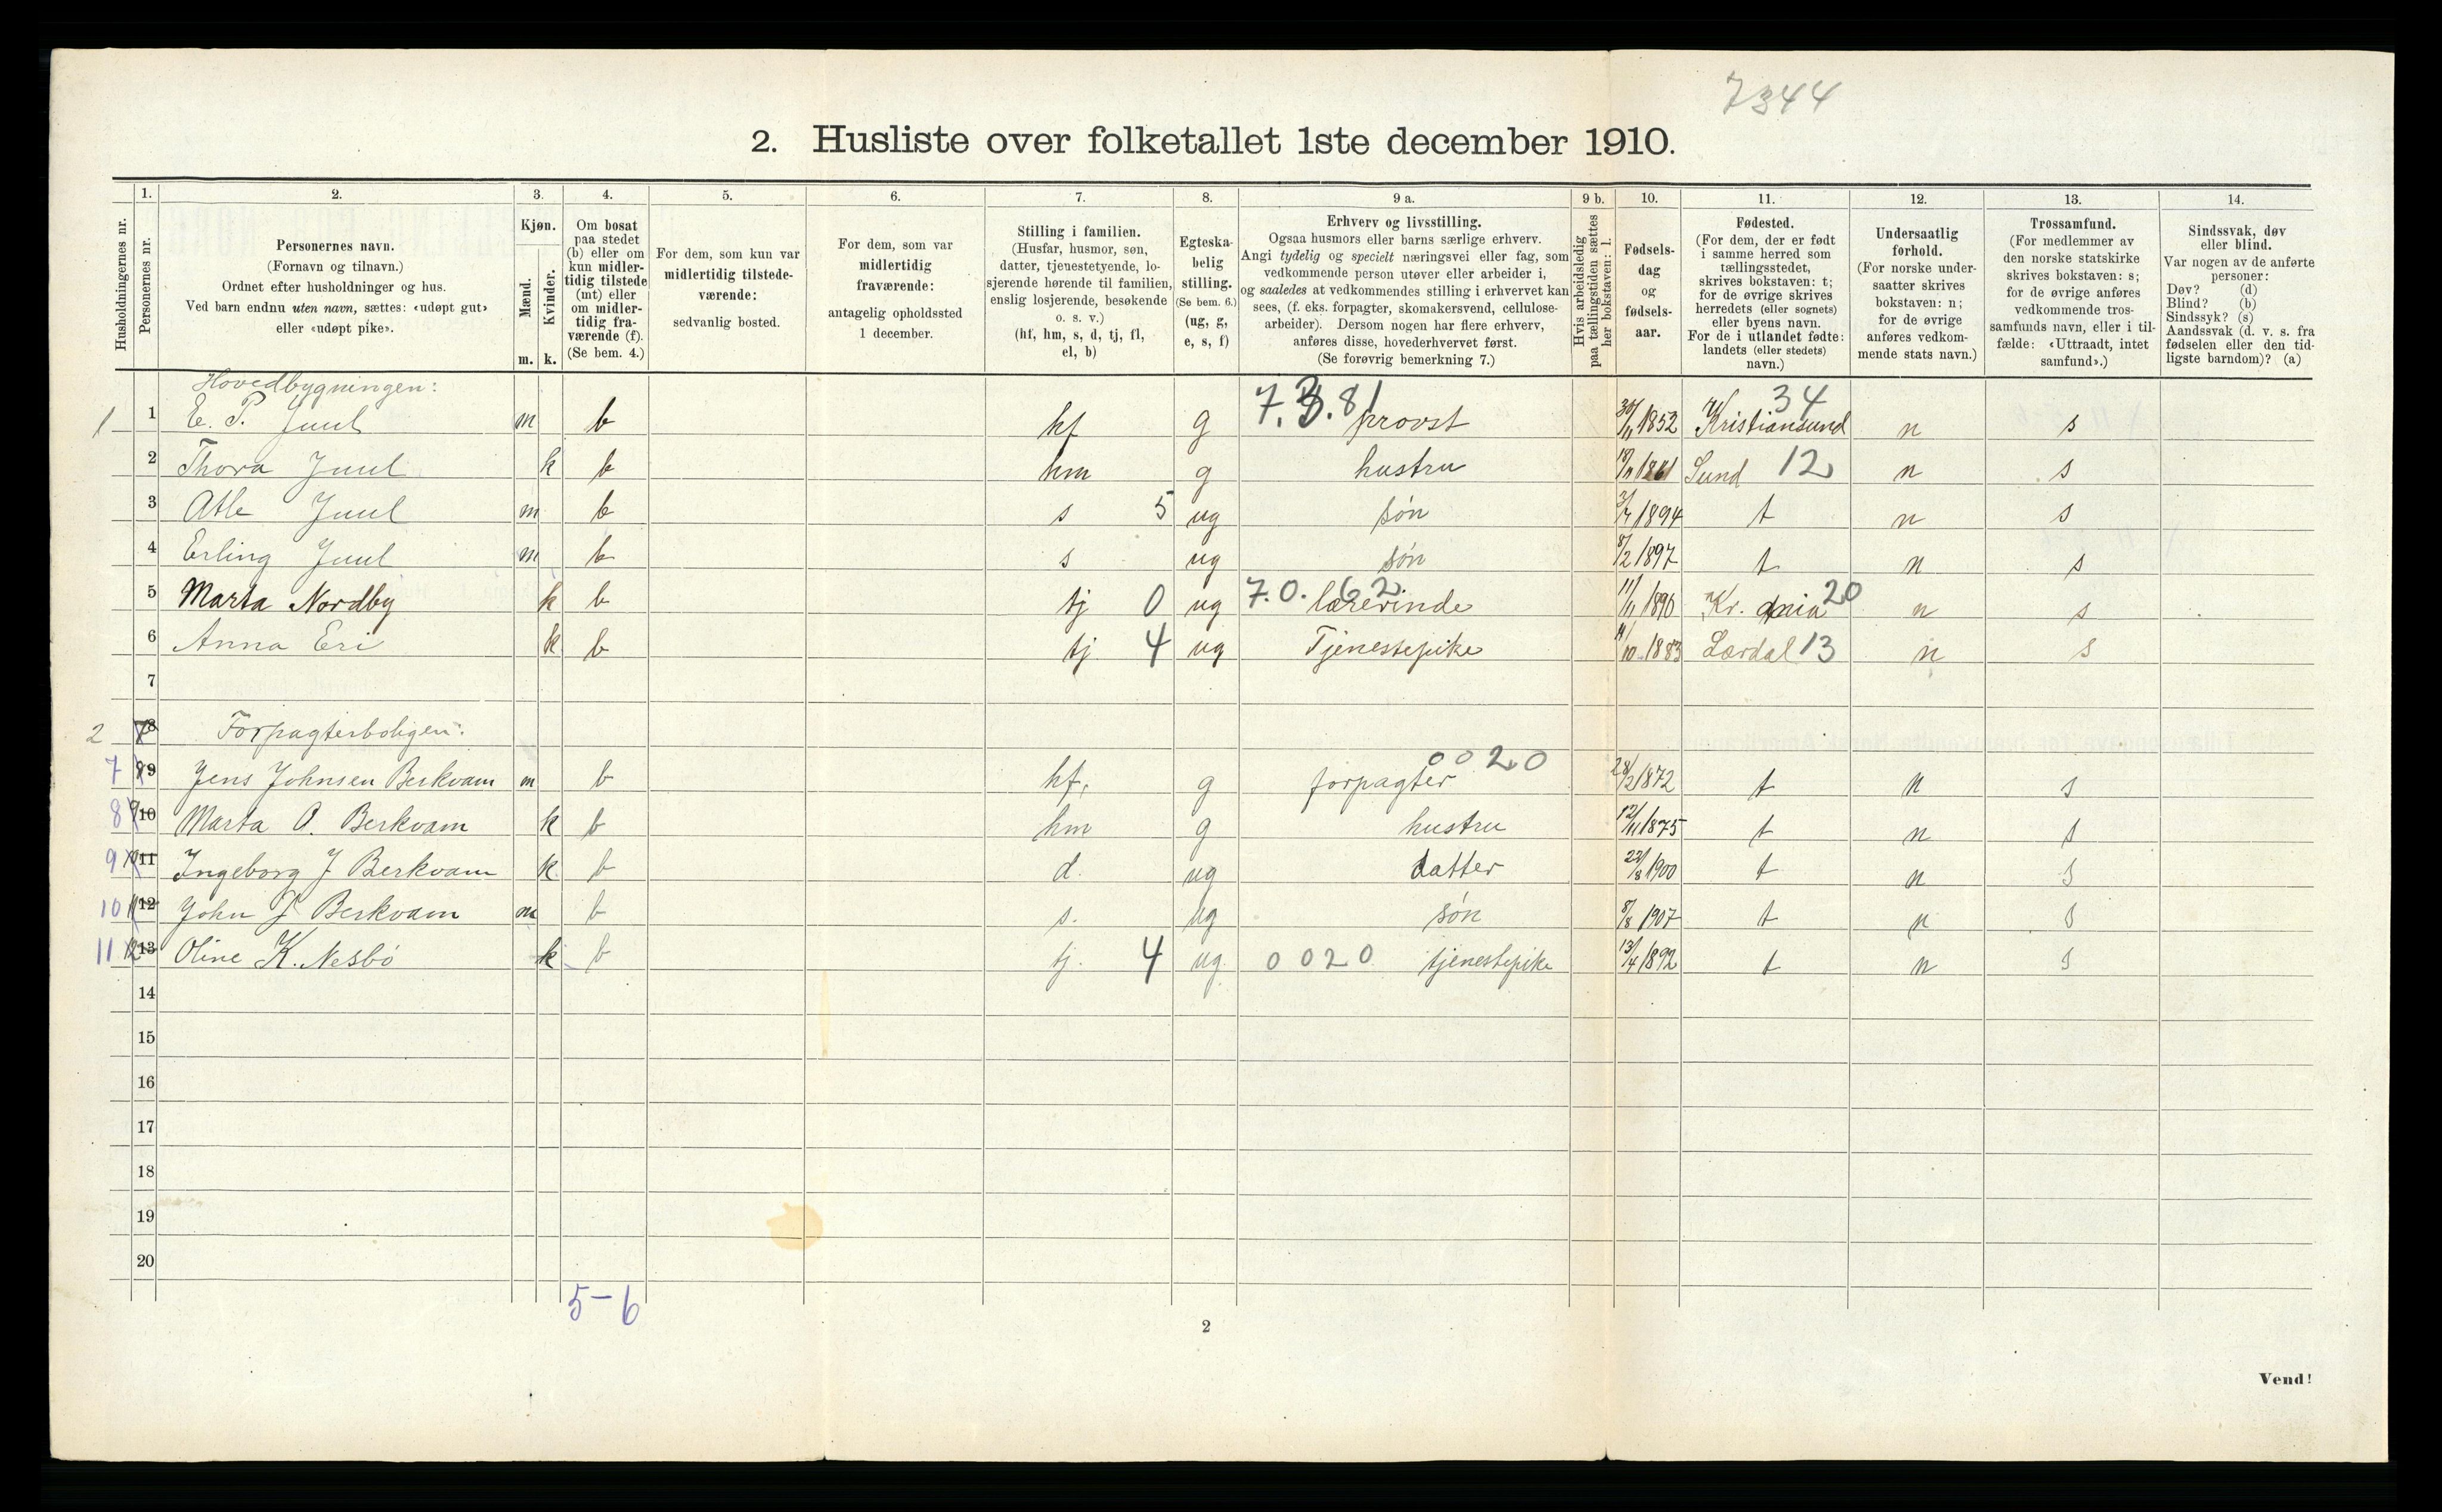 7344
2. Husliste over folketallet 1ste december 1910.
Husholdningernes nr.
1.
Personernes nr.
2.
Personernes navn.
(Fornavn og tilnavn.)
Ordnet efter husholdninger og hus.
Ved barn endnu uten navn, sættes: «udøpt gut»
eller «udøpt pike».
3.
Kjøn.
Mænd.
Kvinder.
m. k.
4.
Om bosat
paa stedet
(b) eller om
kun midler-
tidig tilstede
(mt) eller
om midler-
tidig fra-
værende (f).
(Se bem. 4.)
5.
For dem, som kun var
midlertidig tilstede-
værende:
sedvanlig bosted.
6.
For dem, som var
midlertidig
fraværende:
antagelig opholdssted
1 december.
7.
Stilling i familien.
(Husfar, husmor, søn,
datter, tjenestetyende, lo-
sjerende hørende til familien,
enslig losjerende, besøkende
o. s. v.)
(hf, hm, s, d, tj, fl,
el, b)
8.
Egteska-
belig
stilling.
(Se bem. 6.)
(ug, g,
e, s, f)
9 a.
Erhverv og livsstilling.
Ogsaa husmors eller barns særlige erhverv.
Angi tydelig og specielt næringsvei eller fag, som
vedkommende person utøver eller arbeider i,
og saaledes at vedkommendes stilling i erhvervet kan
sees, (f. eks. forpagter, skomakersvend, cellulose-
arbeider). Dersom nogen har flere erhverv,
anføres disse, hovederhvervet først.
(Se forøvrig bemerkning 7.)
9 b.
Hvis arbeidsledig
paa tællingstiden sættes
her bokstaven: l.
10.
Fødsels-
dag
og
fødsels-
aar.
11.
Fødested.
(For dem, der er født
i samme herred som
tællingsstedet,
skrives bokstaven: t;
for de øvrige skrives
herredets (eller sognets)
eller byens navn.
For de i utlandet fødte:
landets (eller stedets)
navn.)
12.
Undersaatlig
forhold.
(For norske under-
saatter skrives
bokstaven: n;
for de øvrige
anføres vedkom-
mende stats navn.)
13.
Trossamfund.
(For medlemmer av
den norske statskirke
skrives bokstaven: s;
for de øvrige anføres
vedkommende tros-
samfunds navn, eller i til-
fælde: «Uttraadt, intet
samfund».)
14.
Sindssvak, døv
eller blind.
Var nogen av de anførte
personer:
Døv? (d)
Blind? (b)
Sindssyk? (s)
Aandssvak (d. v. s. fra
fødselen eller den tid-
ligste barndom)? (a)
Hovedbygningen:
1 1 E. P. Juul m b hf g 7.3.81 provst 30/11 1852 Kristiansund 34 n s
2 Thora Juul k b hm g hustru 1861 Sund 12 n s
3 Atle Juul m b s 5 ug søn 3/7 1894 t n s
4 Erling Juul m b s ug søn 8/2 1897 t n s
5 Marta Nordby k b tj 0 ug 7.0.62 lærerinde 11/11 1890 Kr. ania 20 n s
6 Anna Eri k b tj 4 ug Tjenestepike 10 1883 Lærdal 13 n s
7
2 8 Forpagterboligen:
7 9 Jens Johnsen Berkvam m b hf, g 0020 forpagter 28/2 1872 t n s
8 10 Marta O. Berkvam k b hm g hustru 12/11 1875 t n s
9 11 Ingeborg J Berkvam k b d. ug datter 22/8 1900 t n s
10 12 John J Berkvam m b s. ug søn 8/8 1907 t n s
11 13 Oline K. Nesbö k b tj. 4 ug. 0020 tjenestepike 13/4 1892 t n s
14
15
16
17
18
19
20
5-6
2
Vend!